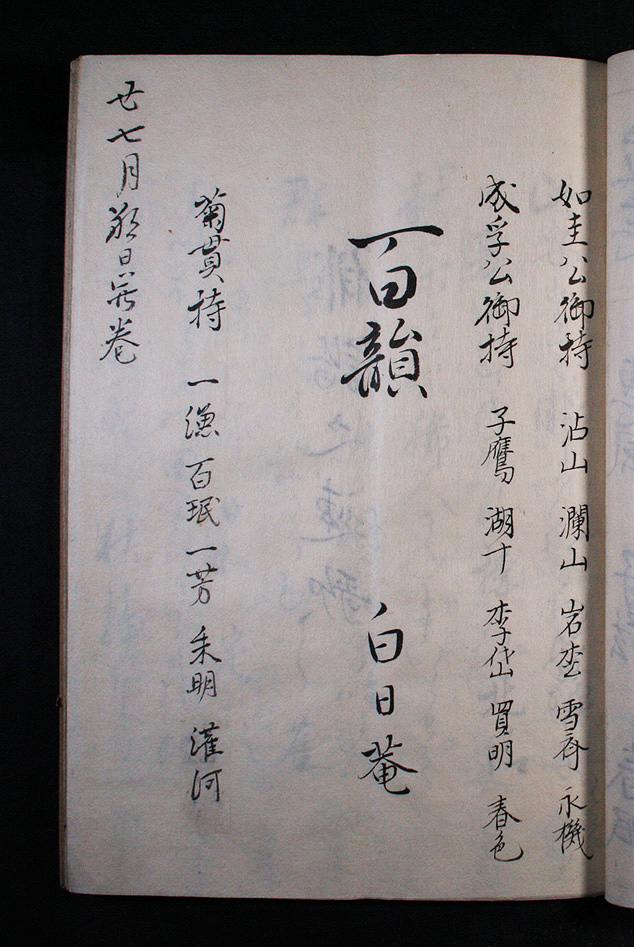 如圭公御持 沾山 瀾山 岩松 雪斎 永機
成孚公御持 子鷹 湖十 李岱 買明 春色
百韻 白日菴
菊貫持 一漁 百珉 一芳 朱明 灌河
廿七月 日 巻